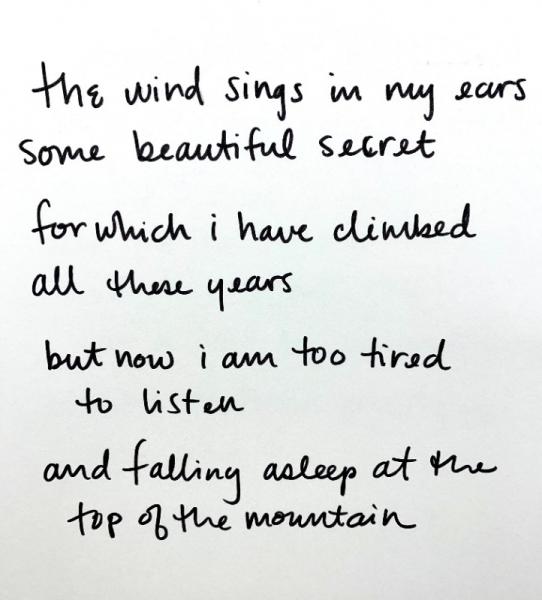 the wind sings in my ears
some beautiful secret
for which i have climbed
all these years
but now i am too tired
to listen
and falling asleep at the
top of the mountain